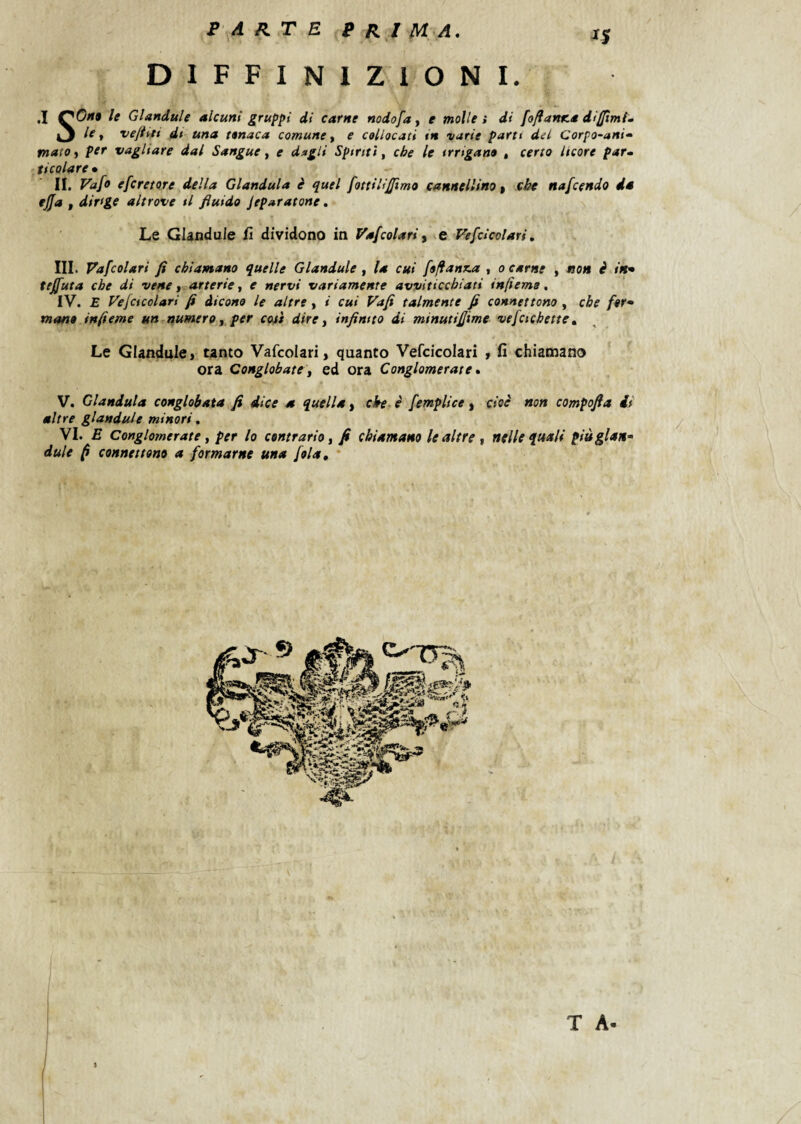 PARTE PRIMA.
15
DIFFINIZIONI.
.I SOno le Glandule alcuni gruppi di carne nodosa, e molle; di sostanza dissimi-
le, vestiti di una tonaca comune, e collocati in varie parti del Corpo-ani-
mato, per vagliare dal Sangue, e dagli Spiriti, che le irrigano, certo licore par-
ticolare.
II. Vaso escretore della Glandula è quel sottilissimo cannellino, che nascendo da
essa, dirige altrove il fluido separatone.
Le Glandule si dividono in Vascolari, e Vescicolari.
III. Vascolari si chiamano quelle Glandule, la cui sostanza, o carne, non è in-
tessuta che di vene, arterie, e nervi variamente avviticchiati insieme.
IV. E Vescicolari si dicono le altre, i cui Vasi talmente si connettono, che for-
mano insieme un numero, per così dire, infinito di minutissime vescichette.
Le Glandule, tanto Vascolari, quanto Vescicolari, si chiamano
ora Conglobate, ed ora Conglomerate.
V. Glandula conglobata si dice a quella, che è semplice, cioè non composta di
altre glandule minori.
VI. E Conglomerate, per lo contrario, si chiamano le altre, nelle quali più glan-
dule si connettono a formarne una sola.
TA-